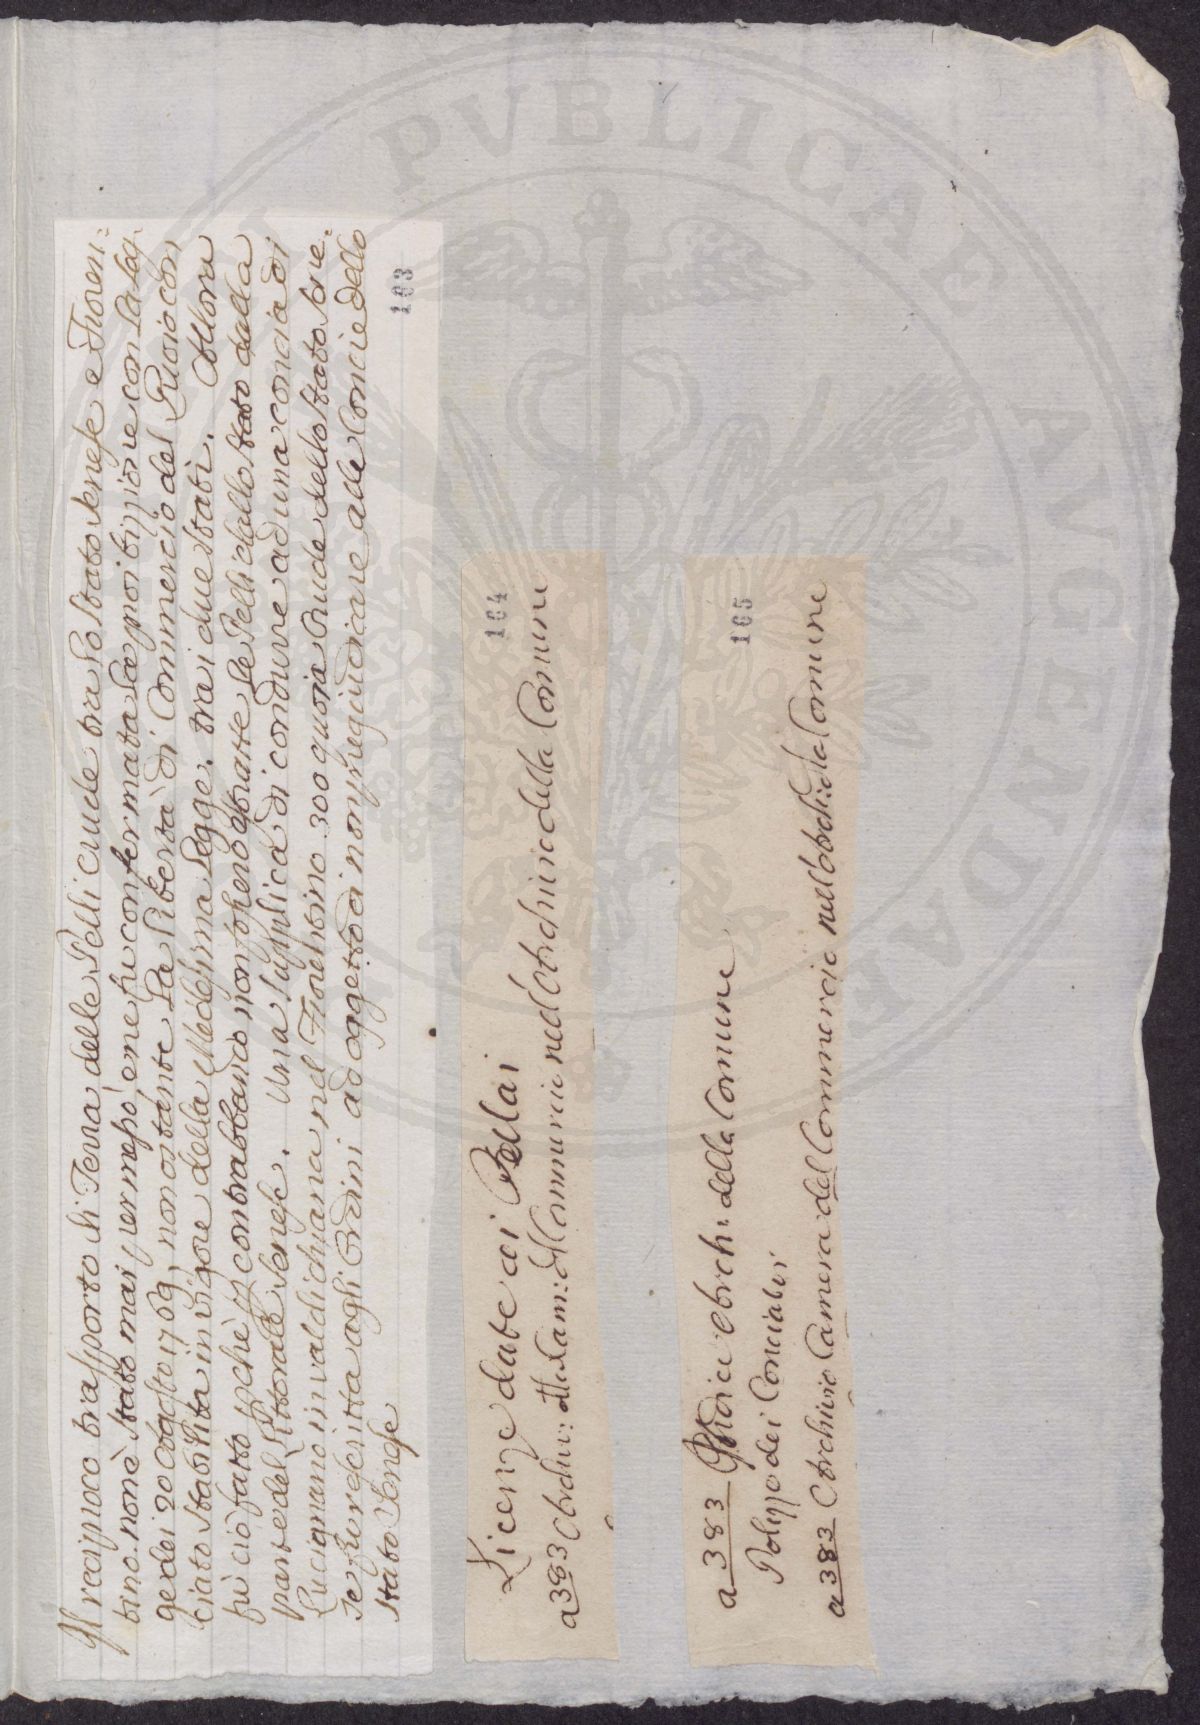 Il reciproco trasporto di Terra delle Pelli crude tra lo stato Senese e Fioren:
tino non è stato mai permesso, e ne fu confermata la proibizzione con la leg:
ge dei 20 Agosto 1769, nonostante la libertà di Commercio del Quoio con
ciato stabilita in vigore della Medesima legge, tra i due stati. Allora
fù ciò fatto perchè in contrabbando non fossero estratte le Pelli dallo stato dalla
parte del Littorale Senese. Una supplica di condurre ad una concia di
Lucignano in valdichiana nel Fiorentino 300 quoia Crude dello stato Sene.
se fu rescritta agli Ordini ad oggetto di non pregiudicare alle Concie dello
stato Senese
163
Licenze date ai Pellai
164
a 383 Archiv: alla Cam: del Commercio nell'Archivio della Comune
a 383 Indice Arch: della Comune
165
Polizze dei Conciatori
a 383 Archivio Camera del Commercio nell'Archi: della Comune
PVBLICAE AVGENDAE